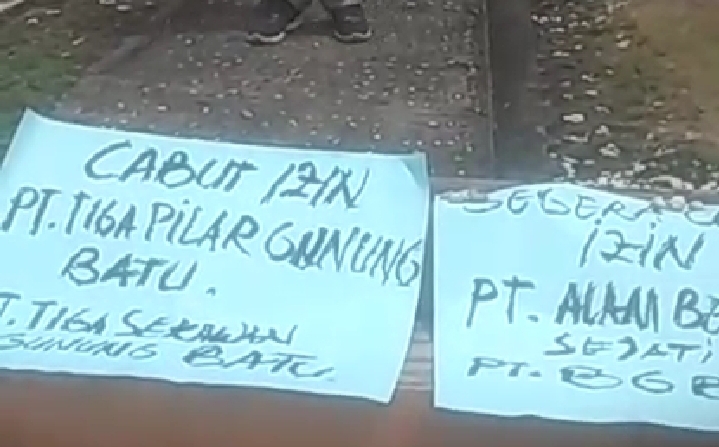 CABUT IZIN
PT. TIGA PILAR GUNUNG
BATU.
T. TIGA SERAWAN
GUNUNG BATU.
SEGERA
IZIN
PT. ALAM BE
SEJATI
PT. BGB